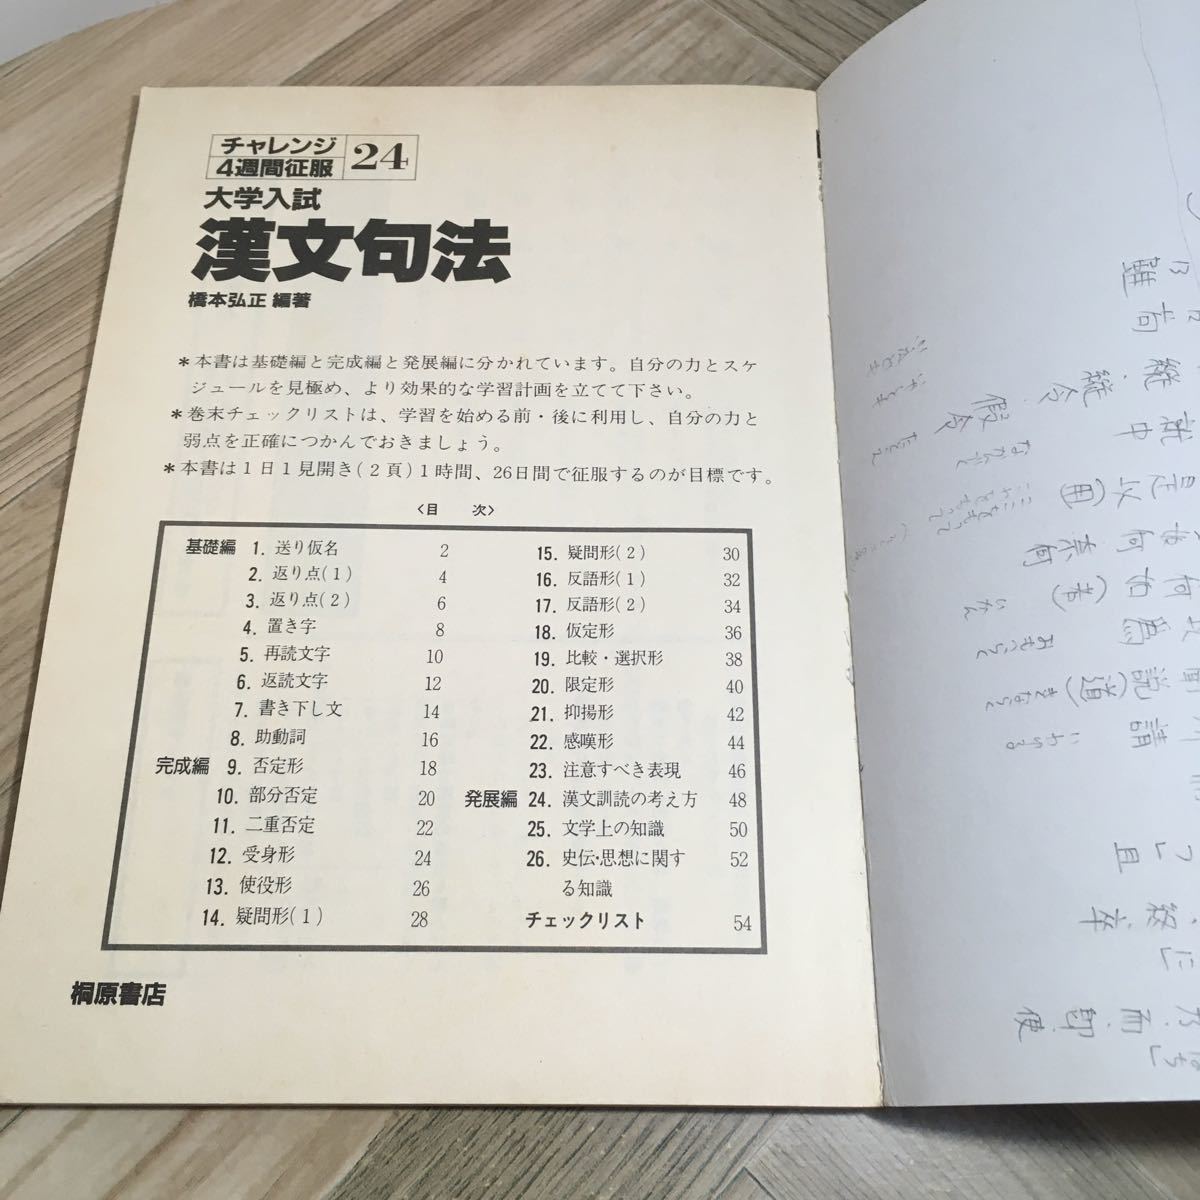 チャレンジ
4週間征服
24
大学入試
漢文句法
橋本弘正 編著
＊本書は基礎編と完成編と発展編に分かれています。自分の力とスケ
ジュールを見極め、より効果的な学習計画を立てて下さい。
＊巻末チェックリストは、学習を始める前・後に利用し、自分の力と
弱点を正確につかんでおきましょう。
＊本書は1日1見開き(2頁)1時間、26日間で征服するのが目標です。
〈目 次〉
基礎編 1. 送り仮名 2
2. 返り点(1) 4
3. 返り点(2) 6
4. 置き字 8
5. 再読文字 10
6. 返読文字 12
7. 書き下し文 14
8. 助動詞 16
完成編 9. 否定形 18
10. 部分否定 20
11. 二重否定 22
12. 受身形 24
13. 使役形 26
14. 疑問形(1) 28
15. 疑問形(2) 30
16. 反語形(1) 32
17. 反語形(2) 34
18. 仮定形 36
19. 比較・選択形 38
20. 限定形 40
21. 抑揚形 42
22. 感嘆形 44
23. 注意すべき表現 46
発展編 24. 漢文訓読の考え方 48
25. 文学上の知識 50
26. 史伝・思想に関す 52
る知識
チェックリスト 54
桐原書店
難
縦・縦令 假令
就中
是以(用)
何 奈何
何如(者)
為
聞説(道)
請
且
卒
而 即 使